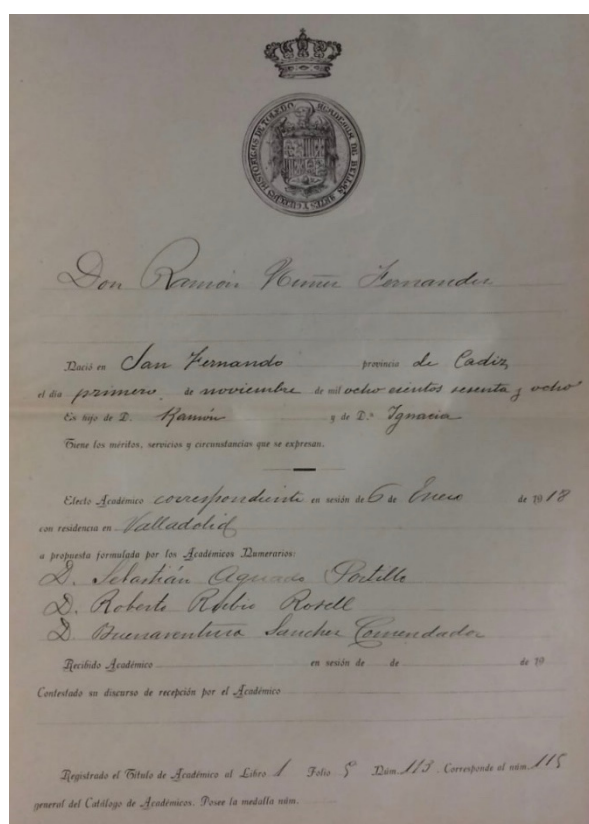 ACADEMIA DE BELLAS ARTES Y CIENCIAS HISTORICAS DE TOLEDO
Don Ramón Nuñez Fernandez
Nació en San Fernando provincia de Cadiz
el día primero de noviembre de mil ocho cientos sesenta y ocho
Es hijo de D. Ramón y de D.ª Ignacia
Tiene los méritos, servicios y circunstancias que se expresan.
Electo Académico correspondiente en sesión de 6 de Enero de 1918
con residencia en Valladolid
a propuesta formulada por los Académicos Numerarios:
D. Sebastián Aguado Portillo
D. Roberto Rubio Rosell
D. Buenaventura Sanchez Comendador
Recibido Académico en sesión de de de 19
Contestado su discurso de recepción por el Académico
Registrado el Título de Académico al Libro 1 Folio 5 Núm. 113. Corresponde el núm. 115
general del Catálogo de Académicos. Posee la medalla núm.